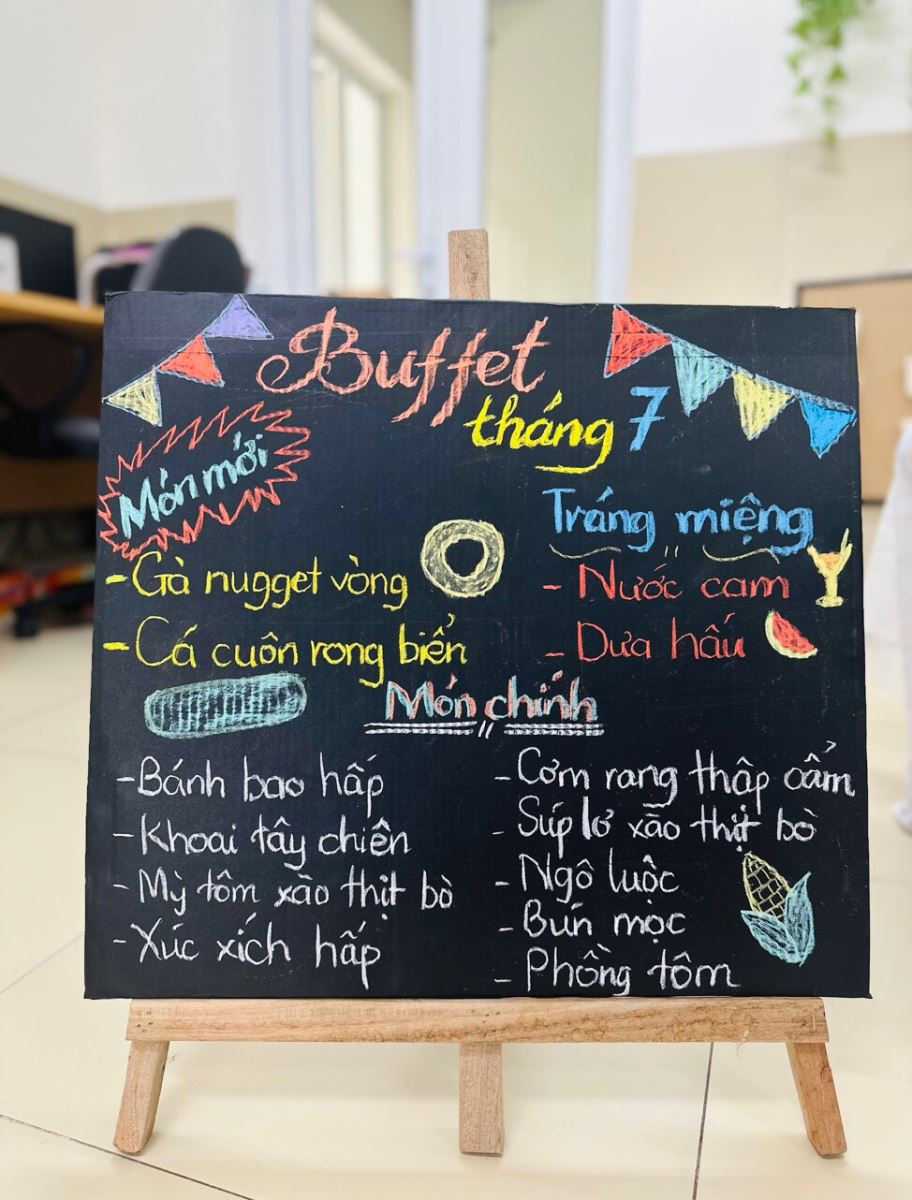 Buffet
tháng 7
Món mới
- Gà nugget vòng
- Cá cuôn rong biển
Tráng miệng
- Nước cam
- Dưa hấu
Món chính
- Bánh bao hấp
- Khoai tây chiên
- Mỳ tôm xào thịt bò
- Xúc xích hấp
- Cơm rang thập cẩm
- Súp lơ xào thịt bò
- Ngô luộc
- Bún mọc
- Phồng tôm